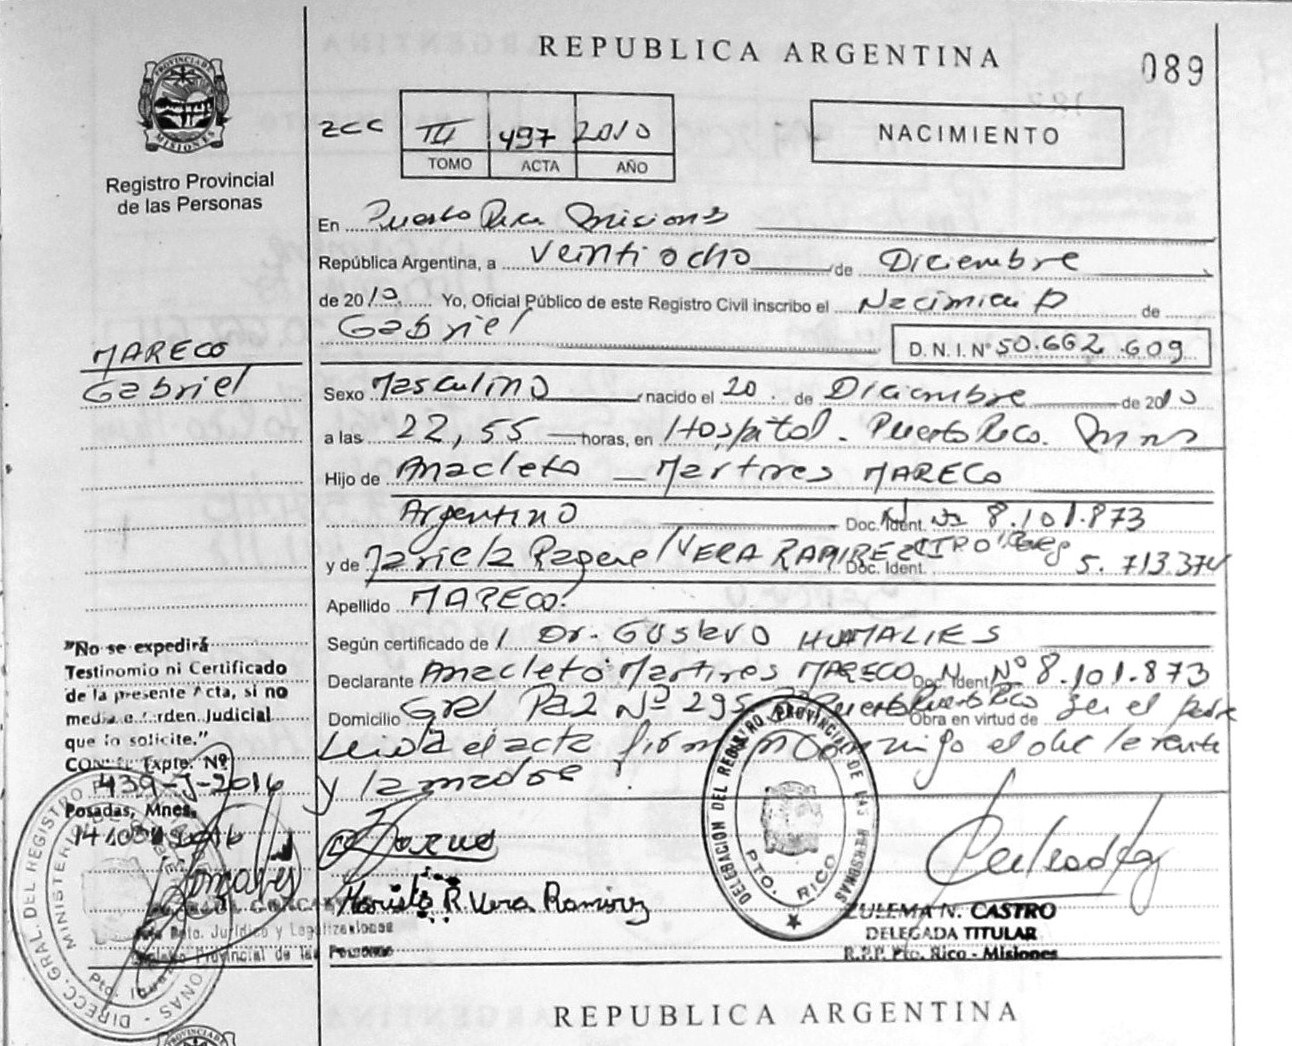 REPUBLICA ARGENTINA
089
PROVINCIA DE
MISIONES
Registro Provincial
de las Personas
ZCC III 497 2010
TOMO ACTA AÑO
NACIMIENTO
En Puesto Rico Misiones
República Argentina, a veinti ocho de Diciembre
de 2010 Yo, Oficial Público de este Registro Civil inscribo el Nacimiento de
Gabriel
D. N. I. Nº 50.662.609
MARECO
Gabriel
Sexo Masculino nacido el 20 de Diciembre de 2010
a las 22,55 horas, en Hospital. Puerto Rico. Mnes
Hijo de Anacleto Martires MARECO
Argentino Doc. Ident. Nº 8.101.873
y de Mariela Raquel VERA RAMIREZ Doc. Ident. 5.713.374
Apellido MARECO.
Según certificado de Dr. Gustavo HUMALIES
Declarante Anacleto Martires MARECO Doc. Ident. Nº 8.101.873
Domicilio Gral Paz Nº 295 Puerto Rico Obra en virtud de ser el padre
Leida el acta firman conmigo el declarante
y la madre
"No se expedirá
Testimonio ni Certificado
de la presente Acta, si no
media Orden Judicial
que lo solicite."
Expte. Nº
439-J-2016
Posadas, Mnes.
DELEGACIÓN DEL REGISTRO PROVINCIAL DE LAS PERSONAS
PTO. RICO
Mariela R. Vera Ramirez
ZULEMA N. CASTRO
DELEGADA TITULAR
R.P.P. Pto. Rico - Misiones
Dpto. Jurídico y Legalizaciones
Registro Provincial de las Personas
DIRECC. GRAL. DEL REGISTRO
MINISTERIO DE
REPUBLICA ARGENTINA
PROVINCIA DE